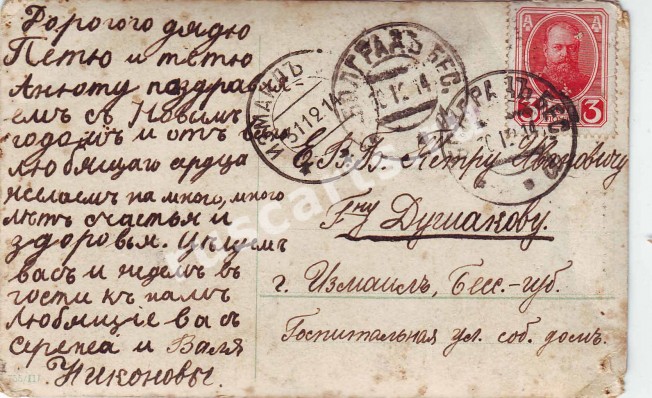 Дорогого дядю
Петю и тетю
Анюту поздравля
емъ съ Новымъ
годомъ и отъ
любящаго сердца
желаемъ на много, много
лѣтъ счастья и
здоровья. Цѣлуемъ
васъ и ждемъ въ
гости къ намъ
любящие васъ
Сережа и Валя
Никоновы.
ИЗМАИЛЪ
БОЛГРАДЪ БЕС.
12 14
БОЛГРАДЪ БЕС.
12 14
3 3
Е. В. Б. Петру Ивановичу
Г-ну Душакову.
г. Измаилъ, Бесс. губ.
Госпитальная ул. соб. домъ.
ruscards.ru